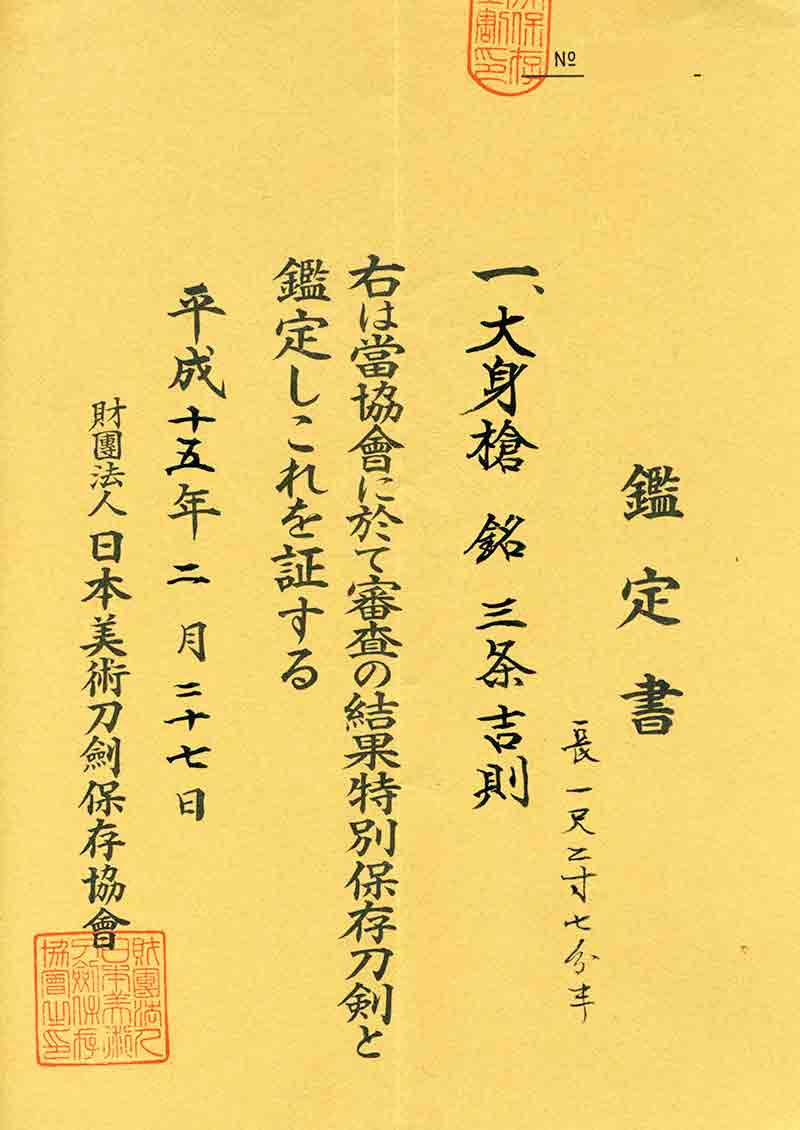 № -
鑑定書
長一尺二寸七分半
一、大身槍 銘 三条吉則
右は當協會に於て審査の結果特別保存刀剣と
鑑定しこれを証する
平成十五年二月二十七日
財團法人日本美術刀劍保存協會
財團法人
日本美術
刀劍保存
協會之印